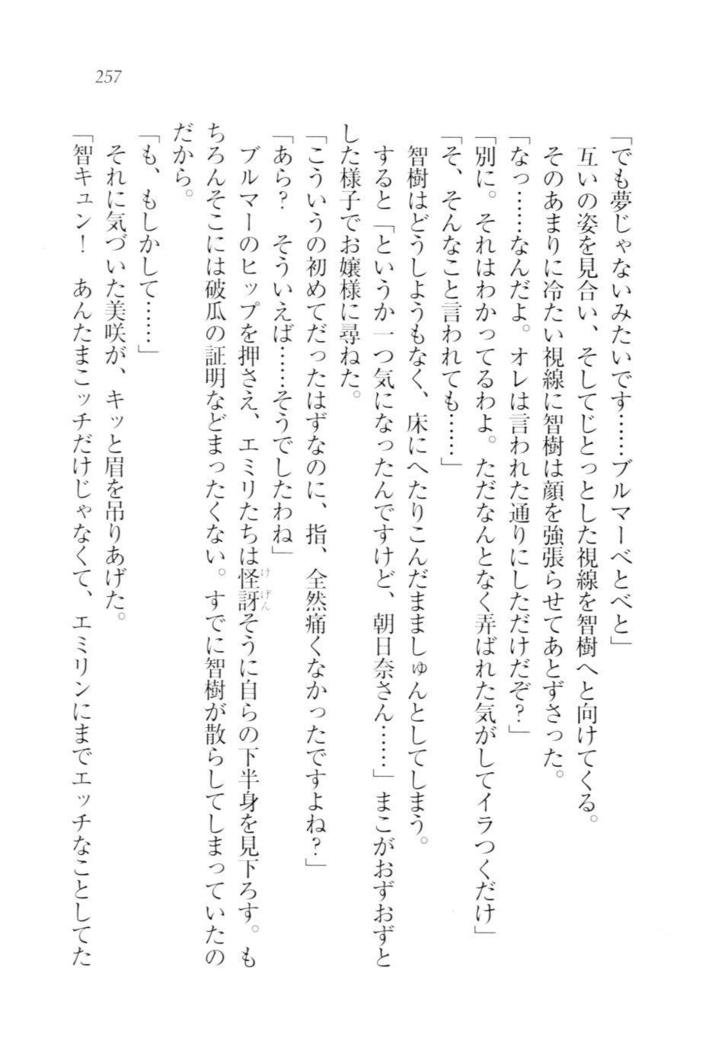 257
「でも夢じゃないみたいです……ブルマーべとべと」
互いの姿を見合い、そしてじとっとした視線を智樹へと向けてくる。
そのあまりに冷たい視線に智樹は顔を強張らせてあとずさった。
「なっ……なんだよ。オレは言われた通りにしただけだぞ？」
「別に。それはわかってるわよ。ただなんとなく弄ばれた気がしてイラつくだけ」
「そ、そんなこと言われても……」
智樹はどうしようもなく、床にへたりこんだまましゅんとしてしまう。
すると「というか一つ気になったんですけど、朝日奈さん……」まこがおずおずと
した様子でお嬢様に尋ねた。
「こういうの初めてだったはずなのに、指、全然痛くなかったですよね？」
「あら？　そういえば……そうでしたわね」
ブルマーのヒップを押さえ、エミリたちは怪訝そうに自らの下半身を見下ろす。も
ちろんそこには破瓜の証明などまったくない。すでに智樹が散らしてしまっていたの
だから。
「も、もしかして……」
それに気づいた美咲が、キッと眉を吊りあげた。
「智キュン！　あんたまこッチだけじゃなくて、エミリンにまでエッチなことしてた